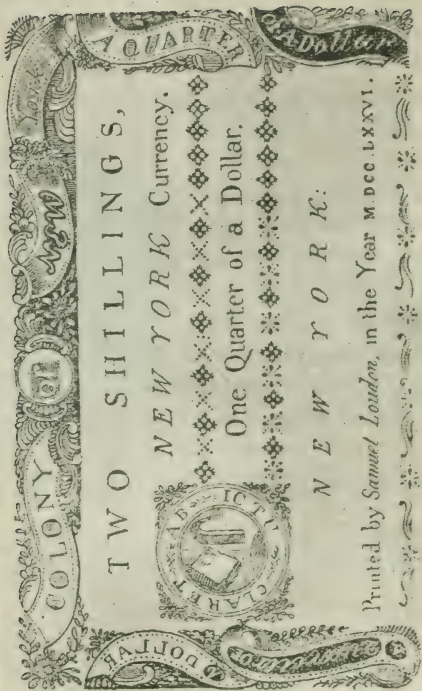 COLONY of New York
A QUARTER of A Dollar
TWO SHILLINGS,
NEW YORK Currency.
One Quarter of a Dollar.
AB ICTU CLARET
NEW YORK:
Printed by Samuel Loudon, in the Year M.DCC.LXXVI.
DOLLAR